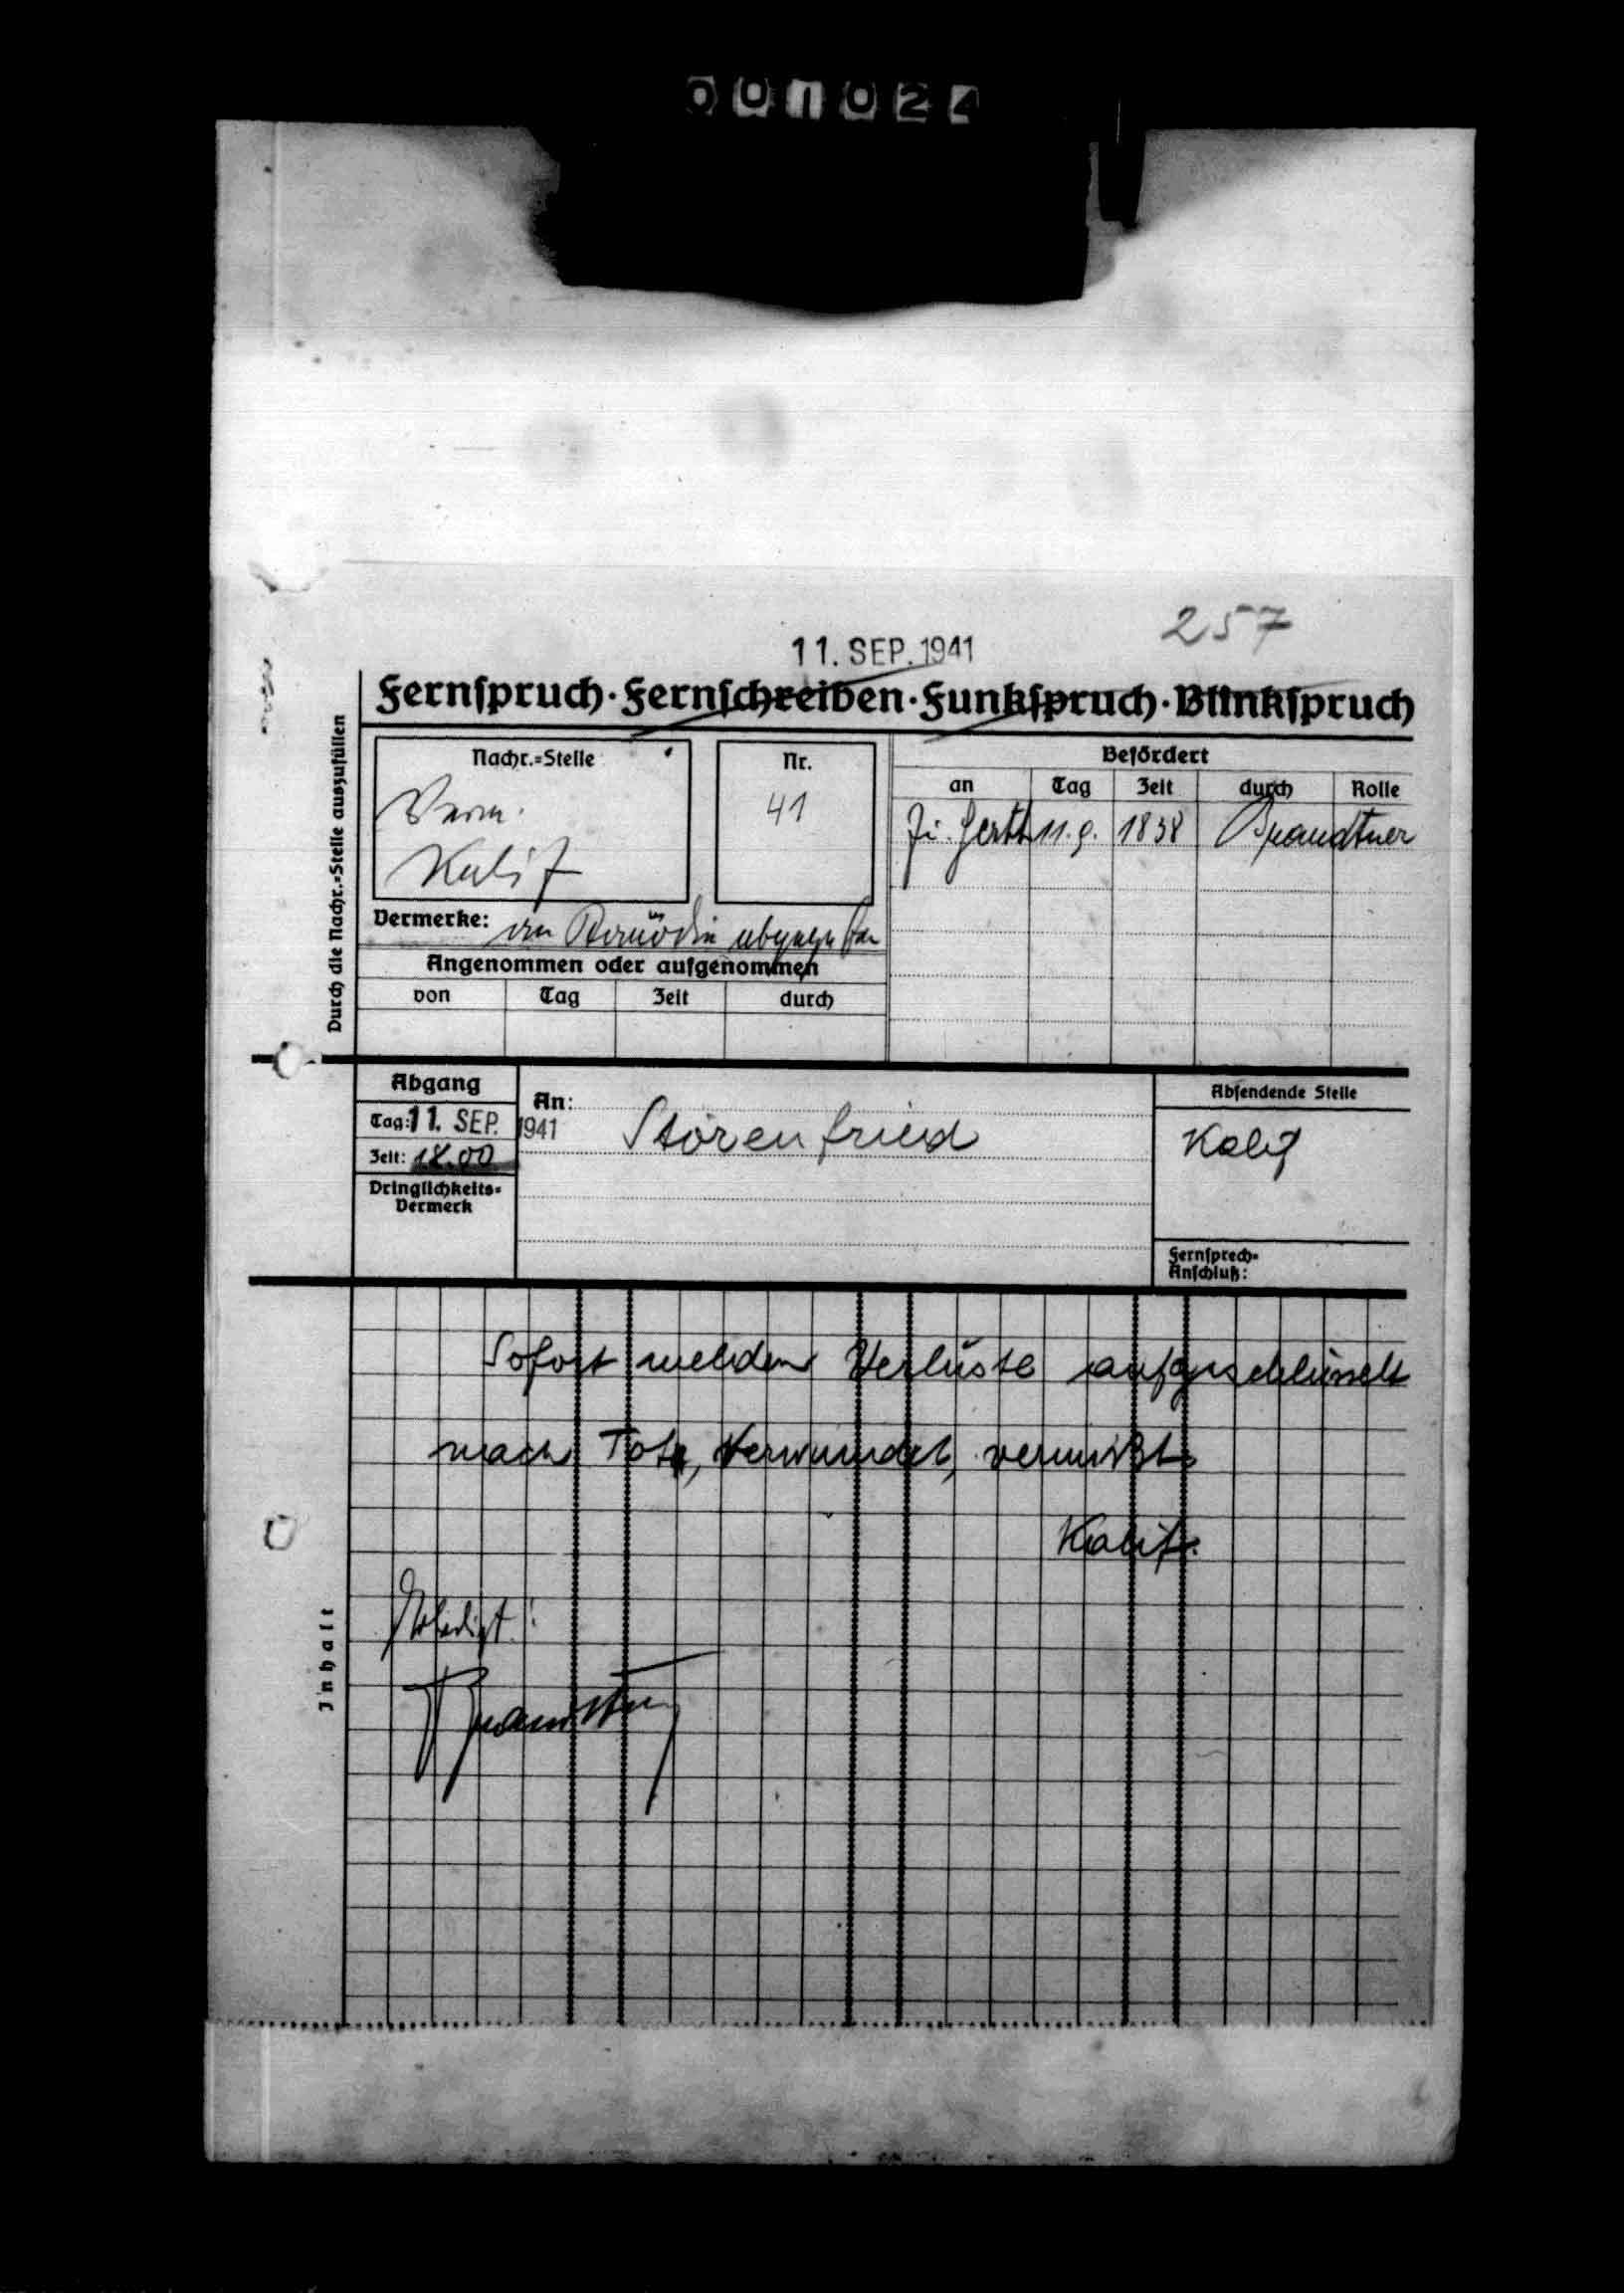 001024
257
11. SEP. 1941
Fernspruch · Fernschreiben · Funkspruch · Blinkspruch
Durch die Nachr.=Stelle auszufüllen
Nachr.=Stelle
Verm.
Kalif
Nr.
41
Befördert
an Tag Zeit durch Rolle
11.9. 1838 Brandtner
Vermerke:
Angenommen oder aufgenommen
von Tag Zeit durch
Abgang
Tag: 11. SEP. 1941
Zeit: 18.00
Dringlichkeits=
Vermerk
An: Störenfried
Absendende Stelle
Kalif
Fernsprech=
Anschluß:
Inhalt
Sofort melden Verluste aufgeschlüsselt
nach Tote, Verwundet, vermißt.
Kalif.
Erledigt!